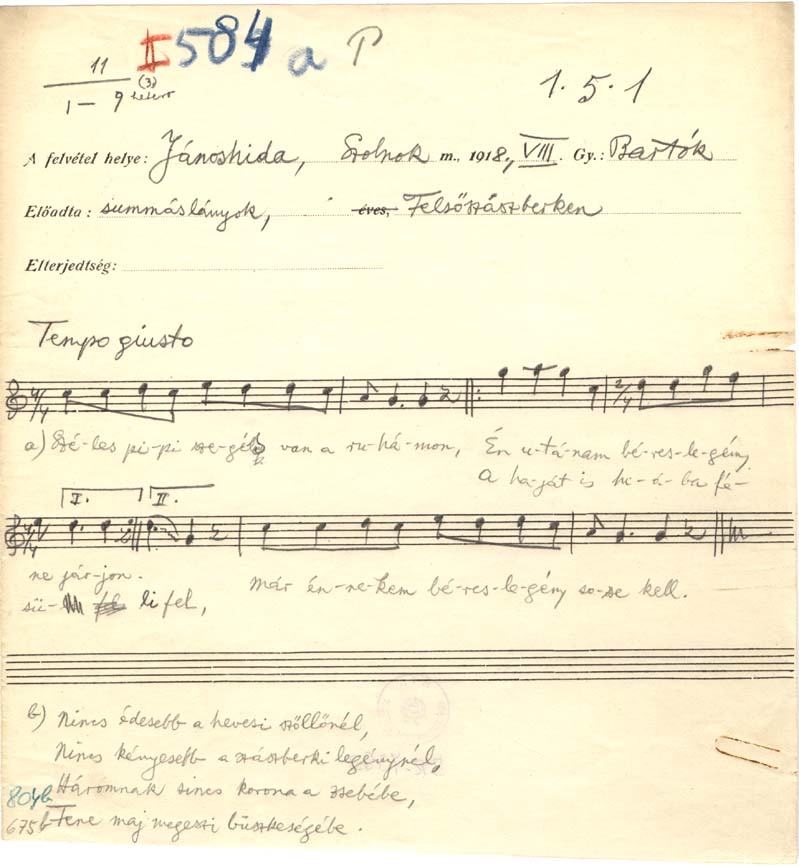 I 584 a P
11
(3)
1 – 9
1. 5. 1
A felvétel helye: Jánoshida, Szolnok m., 1918, VIII. Gy.: Bartók
Előadta: summáslányok, éves, Felsőszászberken
Elterjedtség:
Tempo giusto
4/4 2/4
a) Szé-les pi-pi sze-gély van a ru-há-mon, Én u-tá-nam bé-res-le-gény
A ha-ját is hi-á-ba fé-
I. II.
4/4
ne jár-jon. már én-ne-kem bé-res-le-gény so-se kell.
sü- li fel,
b) Nincs édesebb a hevesi szőllőnél,
Nincs kényesebb a szászberki legénynél,
Háromnak sincs korona a zsebébe,
804b
675b Fene maj megeszi büszkeségébe.